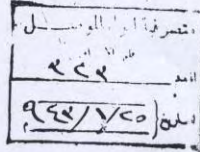 متصرفية لواء الموصل
العدد ٣٢٣
التاريخ ٩٤٣/١/٢٥